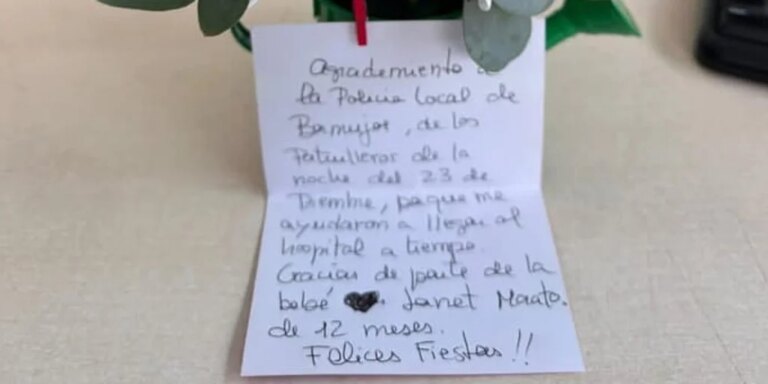 Agrademiento
la Policia Local de
Bamujos, de los
Patrulleros de la
noche del 23 de
Diembre, paque me
ayudaron a llegar al
hospital a tiempo.
Gracias de parte de la
bebé Janet
de 12 meses.
Felices Fiestas!!